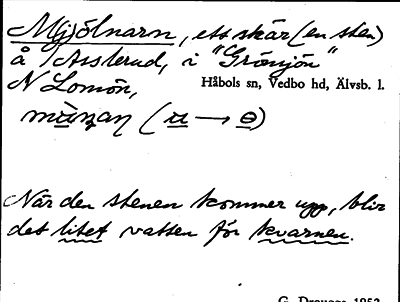 M(j)ölnarn, ett skär (en sten)
å Asslerud, i "Grönsjön"
N Lomön,
Håbols sn, Vedbo hd, Älvsb. l.
När den stenen kommer upp, blir
det litet vatten för kvarnen.